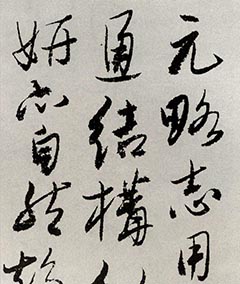 元略志用
通結構
妍亦自然